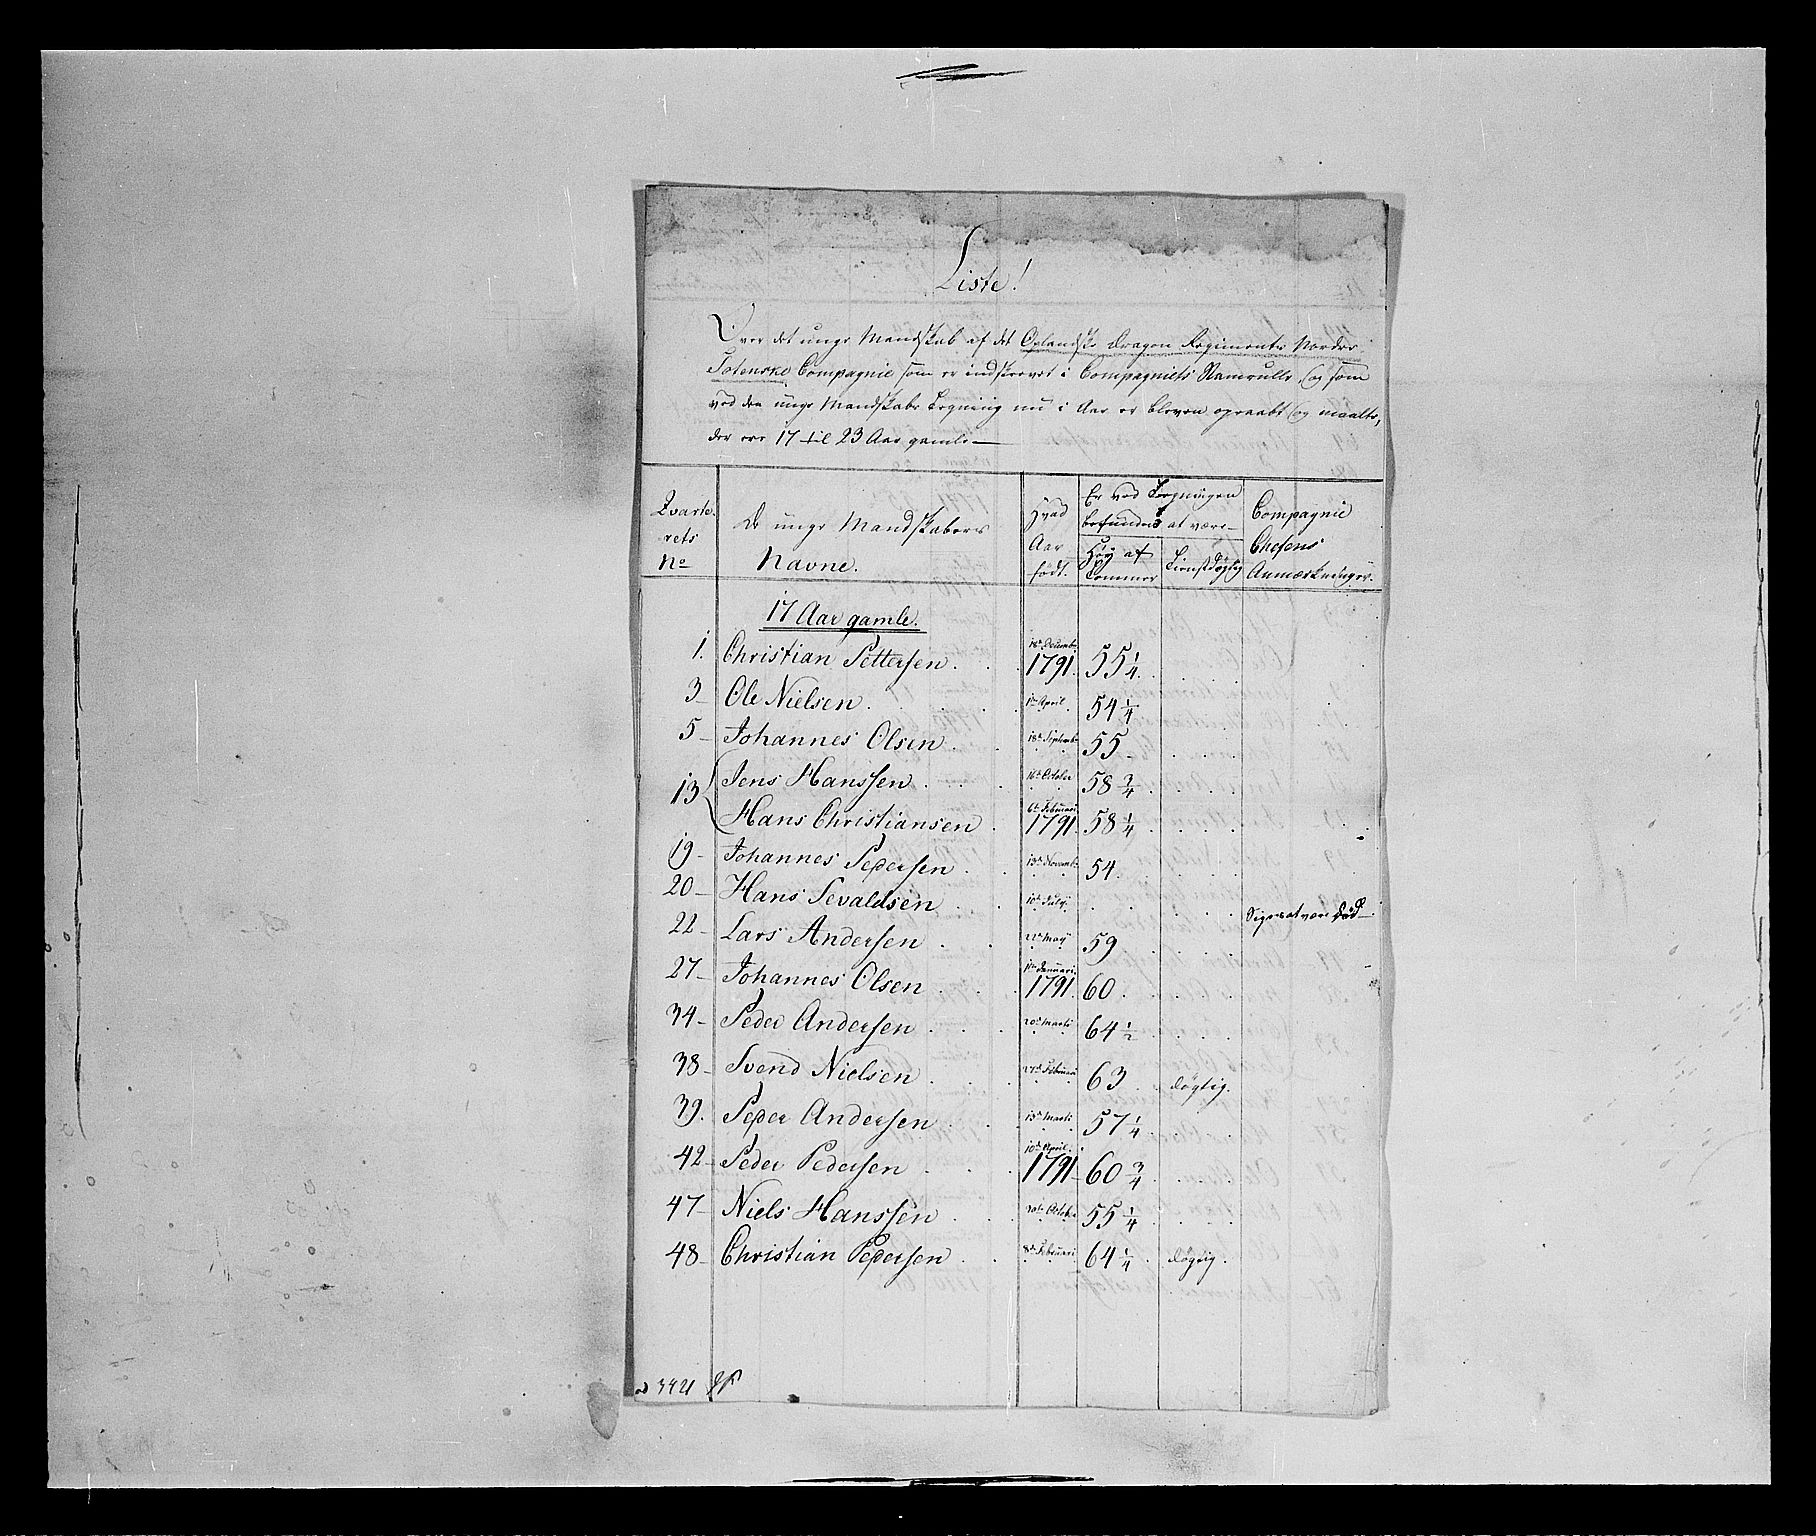 Liste!
Over det unge Mandskab af det Oplandske Dragon Regiments Nordre
Totenske Compagnie som er indskrevet i Compagniets Ramrulle, og som
ved den unge Mandskabs Tegning nu i Aar er bleven opraabt og maalte,
der ere 17 til 23 Aar gamle
Qvarte-
rets
No
De unge Mandskabers
Navne.
Hvad
Aar
født.
Er ved Tegningen
befundne at være
Høy af
Tommer
Tienstdøgtig
Compagnie
Chefens
Anmærkninger.
17 Aar gamle.
1. Christian Pettersen . . 18de Decembr 1791. 55 1/4.
3 Ole Nielsen . 1ste April. 54 1/4
5 Johannes Olsen . . 18de Septembr 55
13 { Jens Hanssen . . . 16de October 58 3/4
Hans Christiansen . 6te Februari 1791. 58 1/4
19 Johannes Pedersen . . 13de Novembr 54.
20 Hans Sevaldsen . . 10de July. Siges at være død
22 Lars Andersen . . 22de May 59
27 Johannes Olsen . . . 1ste Januari. 1791. 60
34 Peder Andersen . . . 20de Marti 64 1/2
38 Svend Nielsen . . . 27de Februari 63 døgtig.
39. Peder Andersen . . 15de Marti 57 1/4
42 Peder Pedersen . . . 10de April. 1791 60 3/4
47 Niels Hanssen . . 20de October 55 1/4
48 Christian Pedersen . . 8de Februari 64 1/4 døgtig.